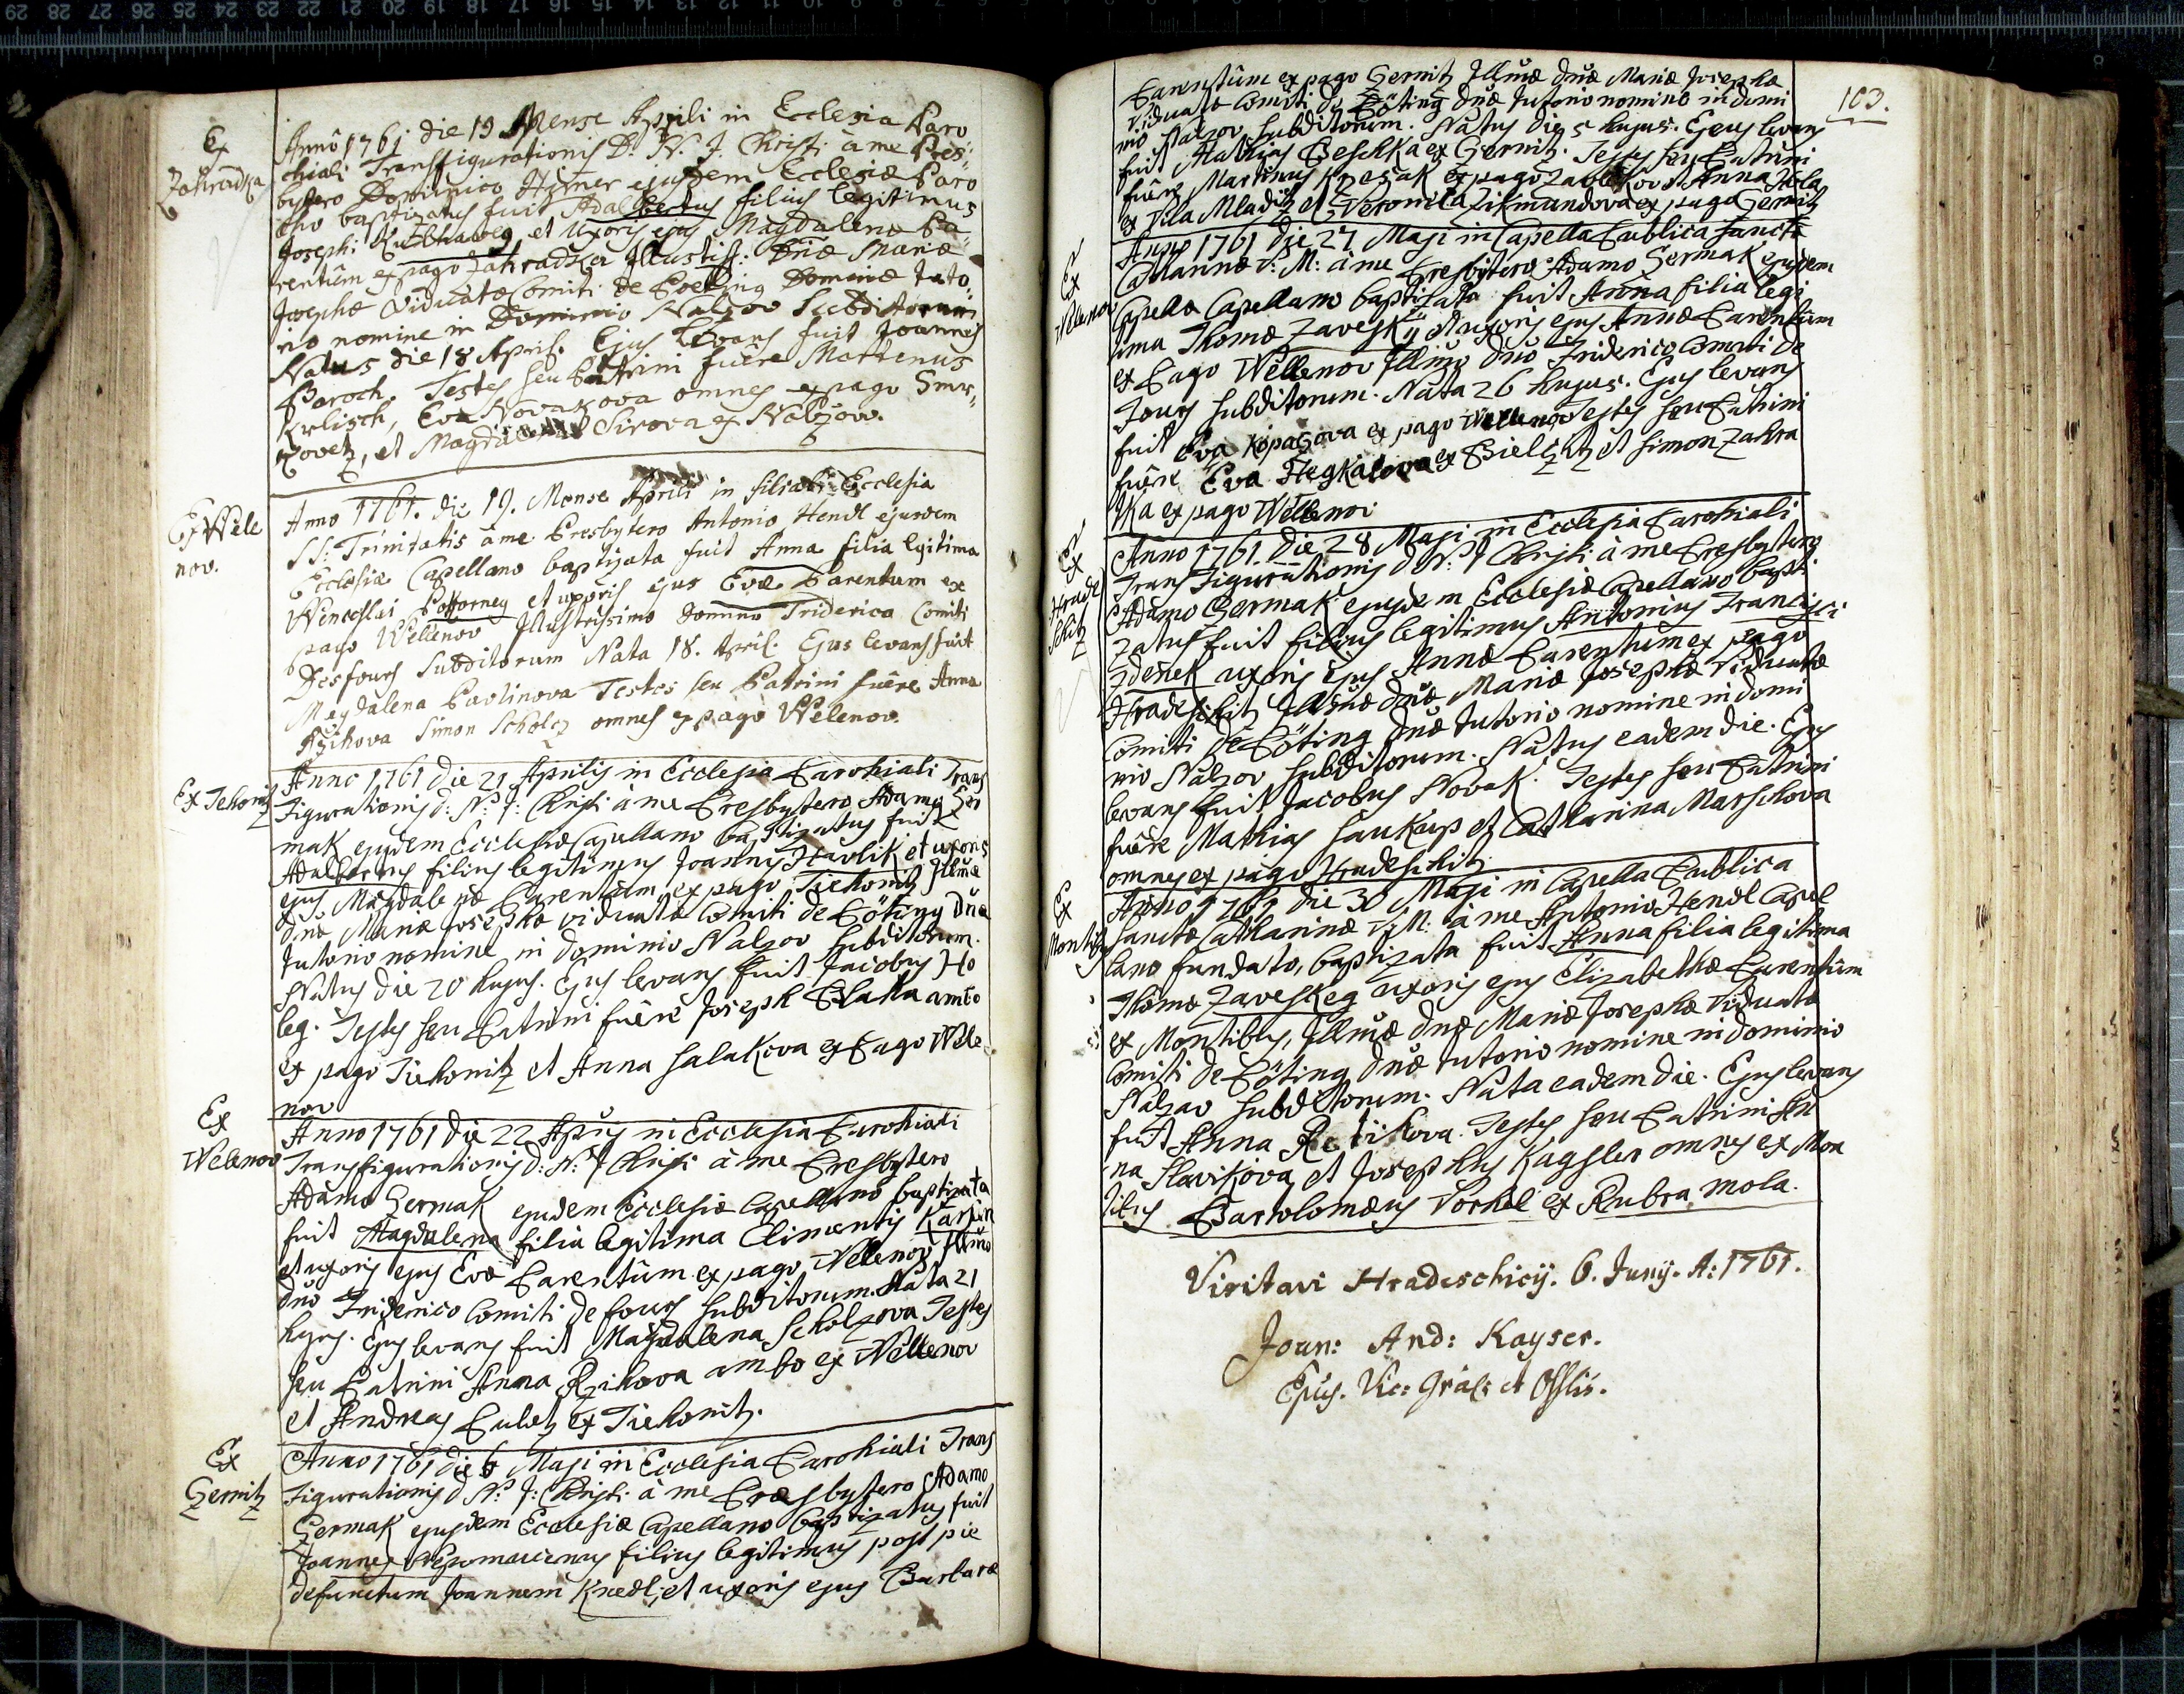 Ex
Zahradka
Anno 1761 die 19 Mense Aprili in Ecclesia Paro
chiali Transfigurationis D. N. J. Christi à me Pres=
bytero Dominico Hymer ejusdem Ecclesiæ Paro
cho baptizatus fuit Adalbertus filius legitimus
Josephi et Uxoris ejus Magdalena Pa=
rentûm ex pago Zahradka Illustiss: Dnæ Mariæ
Josephæ Viduatæ Comiti de Poetting Dominæ tuto=
rio nomine in Dominio Nalzov Subditorum
Natus die 18 April. Ejus levans fuit Joannes
Baroch, Testes seu Patrini fuêre Martinus
Krlisch, Eva Novakova omnes ex pago Smr=
zovetz, et Magdalena Sirova ex Nalzow.
Ex Wele
nov.
Anno 1761. die 19. Mense Aprili in filiali Ecclesia
SS: Trinitatis à me Presbytero Antonio Hendl ejusdem
Ecclesiæ Capellano baptizata fuit Anna filia lgitima
Wenceslai Pottorney et uxoris ejus Evæ Parentum ex
pago Wellenov Illustrissimo Domino Friderico Comiti
Desfours Subditorum Nata 18. April. Ejus levans fuit
Magdalena Pavlinova Testes seu Patrini fuêre Anna
Rzihova Simon Scholcz omnes ex pago Welenov.
Ex Tehonitz
Anno 1761 die 21 Aprilis in Ecclesia Parohiali Trans
figurationis d: N: J: Christi à me Presbytero Adamo Zer
mak ejusdem Ecclesiæ Capellano baptizatus fuit
Adalbertus filius legitimus Joannis Havlik et uxoris
ejus Magdalenæ Parentûm ex pago Tiehonitz Illmæ
dnæ Mariæ Josephæ viduatæ Comiti de Pöting dnæ
tutorio nomine in dominio Nalzov subditorum.
Natus die 20 hujus. Ejus levans fuit Jacobus Ho
leg. Testes seu Patrini fuêre Joseph Blaha ambo
ex pago Tiehonitz et Anna Salakova ex Pago Wele
nov
Ex
Welenov
Anno 1761 die 22 Aprilis in Ecclesia Parohiali
Transfigurationis d: N: J Christi à me Presbytero
Adamo Zermak ejusdem Ecclesiæ Capellano baptizata
fuit Magdalena filia legitima Climentis Karpin
et uxoris ejus Evæ Parentûm ex pago Welenov Illmo
dno Friderico Comiti defours subditorum. Nata 21
hujus. Ejus levans fuit Magdalena Scholzova Testes
seu Patrini Anna Rzihova ambo ex Wellenov
et Andreas Culetz ex Tiehonitz.
Ex
Zernitz
Anno 1761 die 6 Maji in Ecclesia Parohiali Trans
figurationis d N: J: Christi à me Præsbytero Adamo
Zermak ejusdem Ecclesiæ Capellano baptizatus fuit
Joannes Nepomucenus filius legitimus post pie
defunctum Joannem Knedl, et uxoris ejus Barbaræ
103.
Parentûm ex pago Zernitz Illmæ dnæ Mariæ Josephæ
viduatæ Comiti de Pöting dnæ tutorio nomine in domi
nio Nalzov subditorum. Natus die 5 hujus. Ejus levans
fuit Mathias Peschka ex Zernitz. Testes seu Patrini
fuêre Martinus ex pago et Anna
ex Vila Mladitz et Veronica Zikmundova ex pago Zernitz
Ex
Welenov
Anno 1761 die 27 Maji in Capella Publica Sanctæ
Catharinæ V: M: à me Presbitero Adamo Zermak ejusdem
Capellæ Capellano baptizata fuit Anna filia legi
tima Thomæ Zavesky et uxoris ejus Annæ Parentûm
ex Pago Wellenov Illmo dno Friderico Comiti de
fours subditorum. Nata 26 hujus. Ejus levans
fuit Eva Kopaczova ex pago Wellenov Testes seu Patrini
fuêre Eva Hegkalova ex Bieltz et Simon Zahra
tka ex pago Wellenov
Ex
Hrade
schitz
Anno 1761. Die 28 Maji in Ecclesia Parohiali
Transfigurationis d N: J Christi à me Presbytero
Adamo Zermak ejusdem Ecclesiæ Capellano bapti
zatus fuit filius legitimus Antonius Francisci
Zdenek uxoris ejus Annæ Parentûm ex pago
Hradeschitz Illmæ dnæ Mariæ Josephæ Viduatæ
Comiti de Pöting dnæ tutorio nomine in domi
nio Nalzov subditorum. Natus eadem die. Ejus
levans fuit Jacobus Novak. Testes seu Patrini
fuêre Mathias Saukup et Catharina Marschova
omnes ex pago Hradeschitz.
Ex
Montibus
Anno 1761 die 30 Maji in Capella Publica
Sanctæ Catharinæ V: M: à me Antonio Hendl Capel
lano fundato, baptizata fuit Anna filia legitima
Thomæ Zaveskeg uxoris ejus Elizabethæ Parentûm
ex Montibus, Illmæ dnæ Mariæ Josephæ viduatæ
Comiti de Pöting dnæ tutorio nomine in dominio
Nalzav subditorum. Nata eadem die. Ejus levans
fuit Anna Testes seu Patrini An
na Slavikova, et Josephus Kugsler omnes ex Mon
tibus Bartolomæus Vorhel ex Rubra mola.
Visitavi Hradeschicij. 6. Junij. A: 1761.
Joan: And: Kayser.
Epūs. Vic: Gnāl: et Offlis.